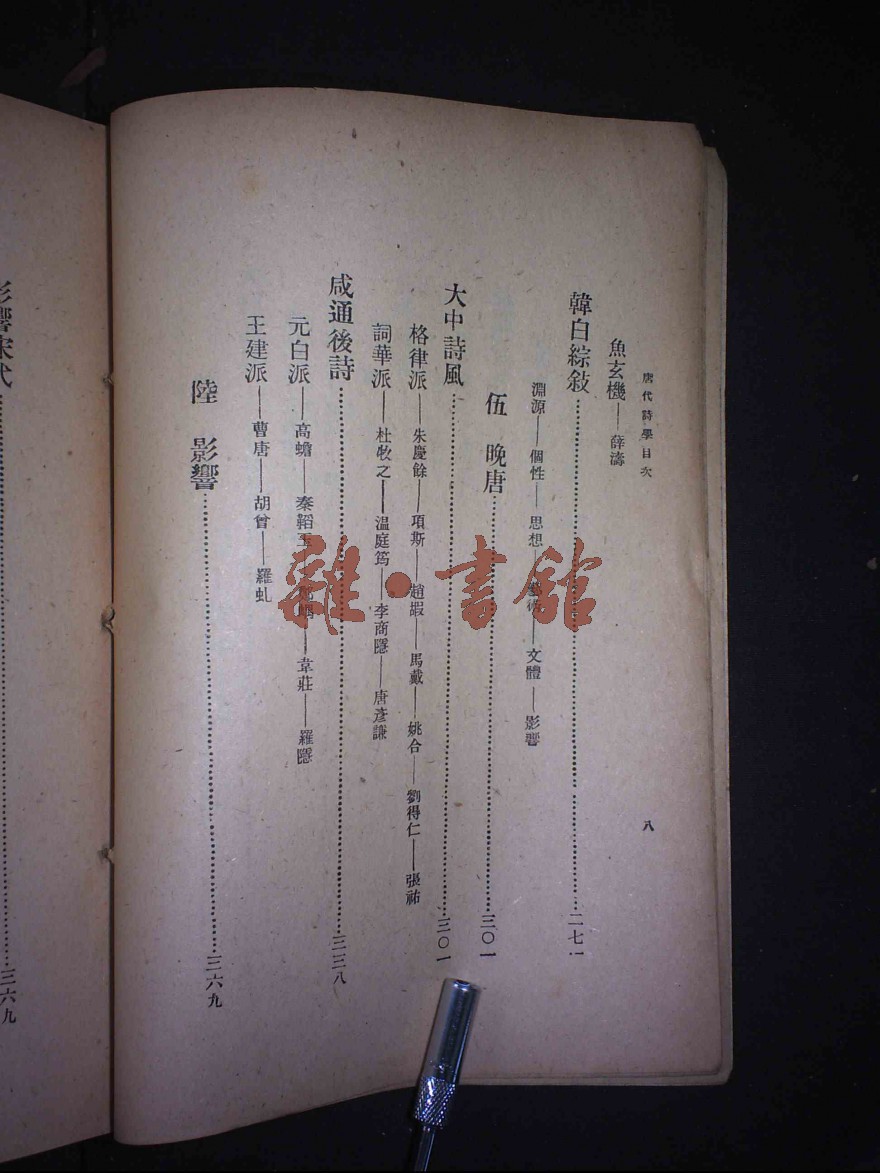 唐代詩學目次
八
魚玄機——薛濤
韓白綜敍……二七一
淵源——個性——思想——藝術——文體——影響
伍 晚唐……三〇一
大中詩風……三〇一
格律派——朱慶餘——項斯——趙嘏——馬戴——姚合——劉得仁——張祐
詞華派——杜牧之——溫庭筠——李商隱——唐彥謙
咸通後詩……三三八
元白派——高蟾——秦韜玉——韋莊——羅隱
王建派——曹唐——胡曾——羅虬
陸 影響……三六九
影響宋代……三六九
雜·書館